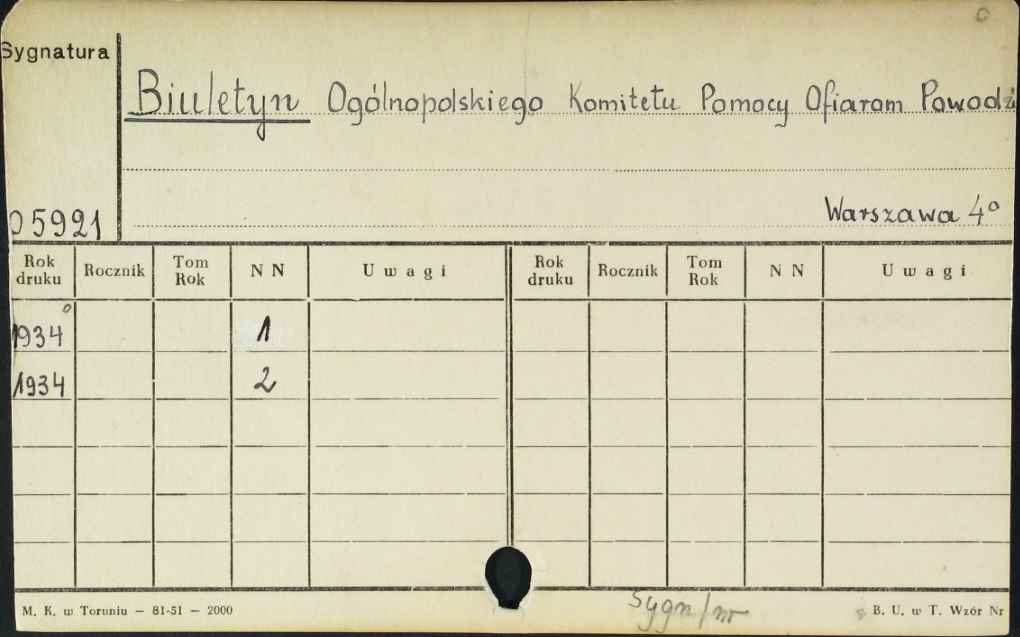 Sygnatura
Biuletyn Ogólnopolskiego Komitetu Pomocy Ofiarom Powodzi
Warszawa 4°
05921
Rok druku Rocznik Tom Rok N N Uwagi Rok druku Rocznik Tom Rok N N Uwagi
1934 1
1934 2
M. K. w Toruniu — 81-51 — 2000
Sygn/nr
B. U. w T. Wzór Nr